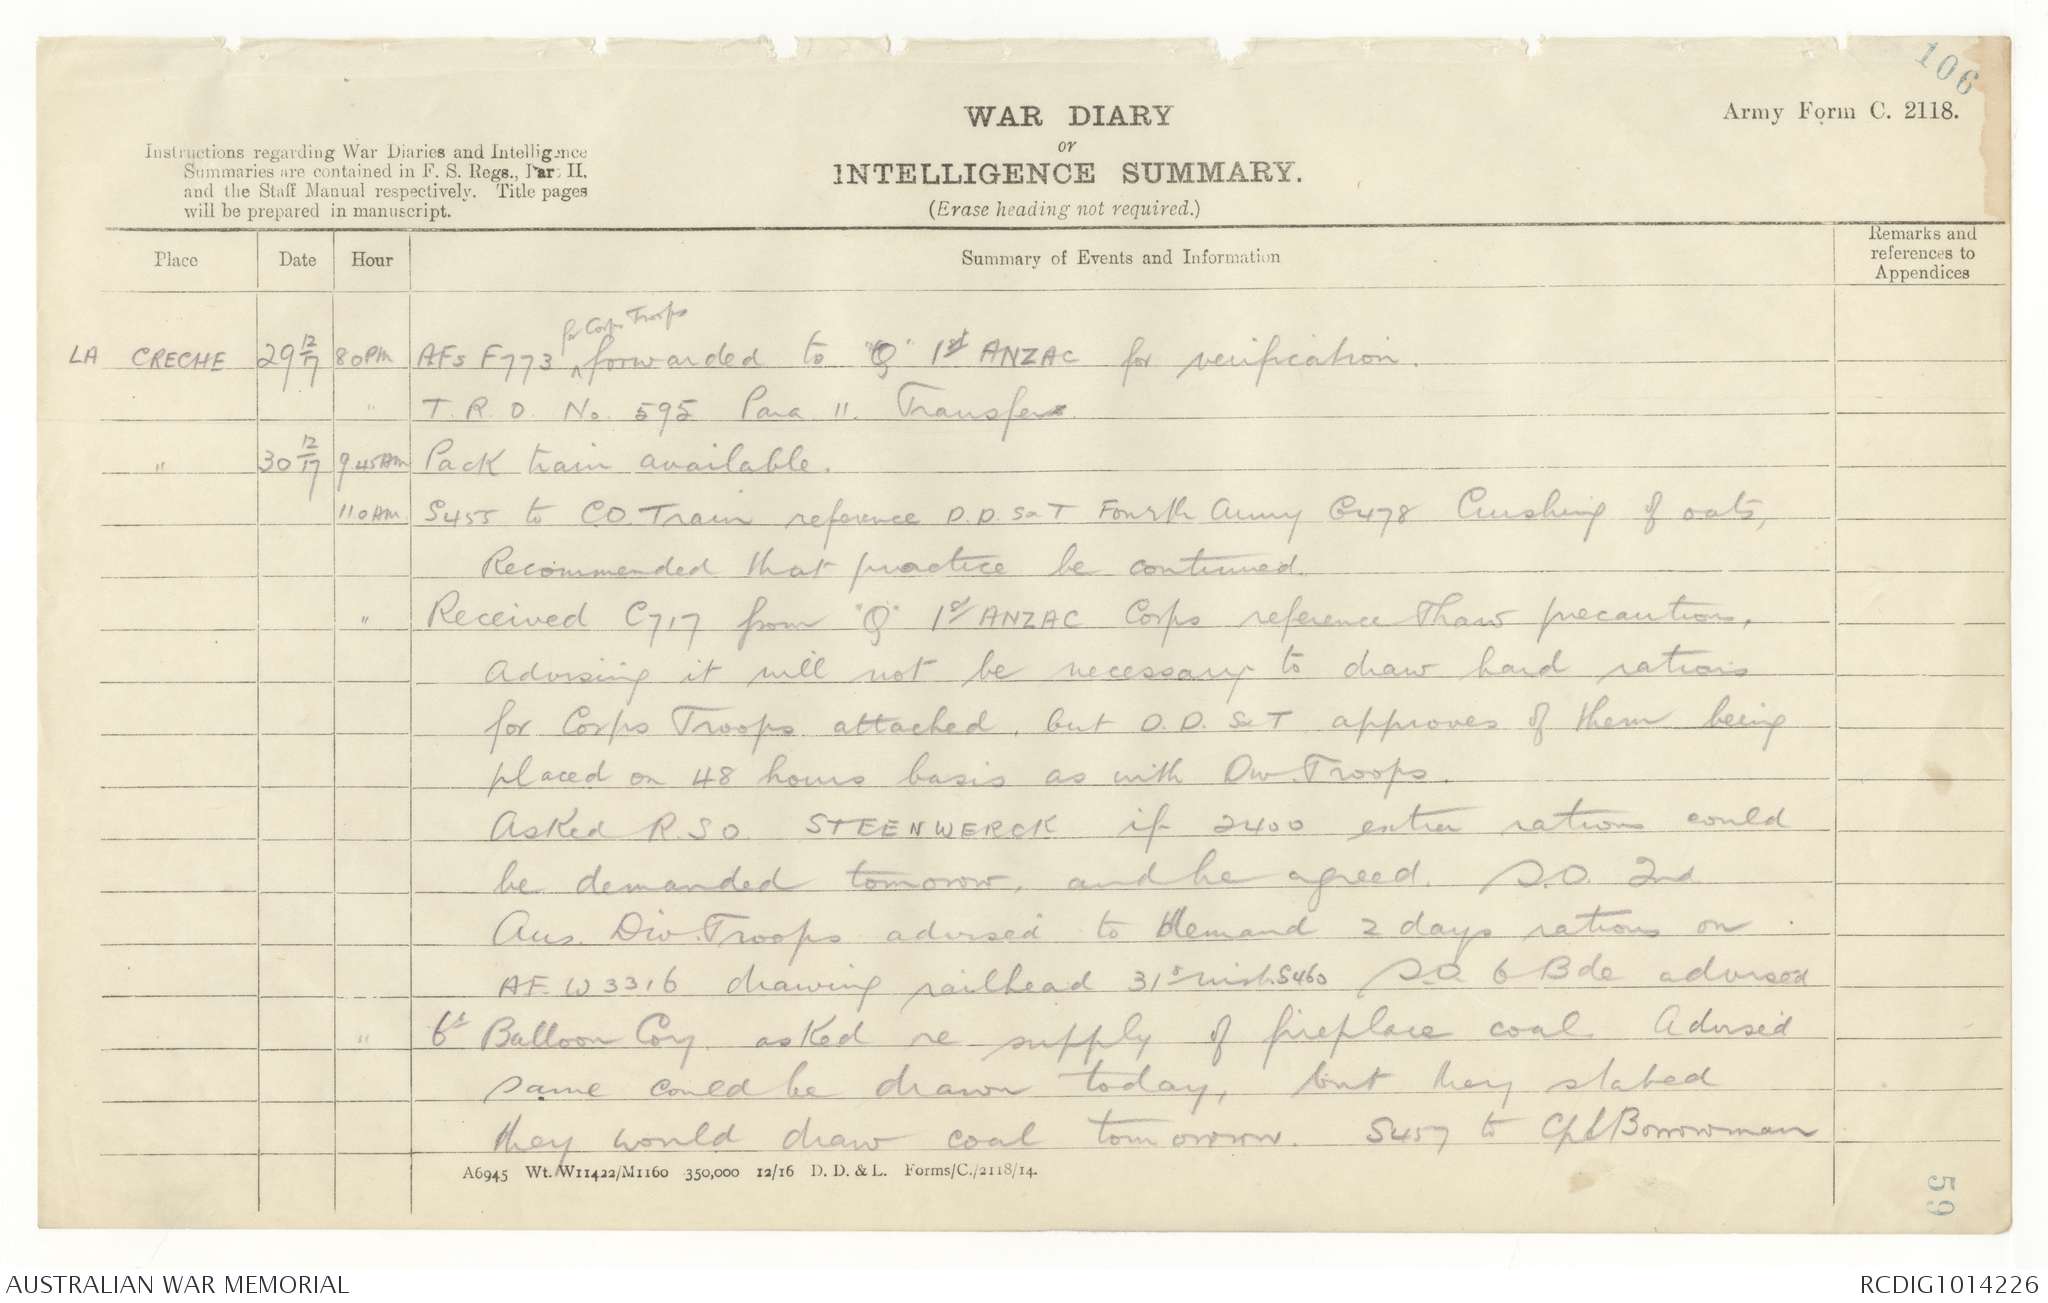 106
Army Form C. 2118.
WAR DIARY
or
INTELLIGENCE SUMMARY.
(Erase heading not required.)
Instructions regarding War Diaries and Intelligence
Summaries are contained in F. S. Regs., Part II,
and the Staff Manual respectively. Title pages
will be prepared in manuscript.
Place Date Hour Summary of Events and Information Remarks and references to Appendices
for Corps Troops
LA CRECHE 29 12/17 8 0 PM AFs F773 ^ forwarded to "Q" 1st ANZAC for verification.
" T. R. O. No. 595 Para 11. Transfers
" 30 12/17 9.45 AM Pack train available.
11.0 AM. S455 to CO. Train reference D.D. S&T Fourth Army Q478 Crushing of oats,
Recommended that practice be continued.
" Received C717 from "Q" 1st ANZAC Corps reference Thaw precautions,
Advising it will not be necessary to draw hard rations
for Corps Troops attached, but D.D. S&T approves of them being
placed on 48 hours basis as with Div. Troops.
Asked R.S.O. STEENWERCK if 2400 extra rations could
be demanded tomorow, and he agreed. S.O. 2nd
Aus. Div. Troops advised to demand 2 days rations on
AF. W3316 drawing railhead 31st inst. S460 S.O. 6 Bde advised
" 6th Balloon Coy. asked re supply of fireplace coal. Advised
same could be drawn today, but they stated
they would draw coal tomorrow. S457 to Cpl Borrowman
A6945 Wt. W11422/M1160 350,000 12/16 D. D. & L. Forms/C./2118/14.
59
AUSTRALIAN WAR MEMORIAL
RCDIG1014226